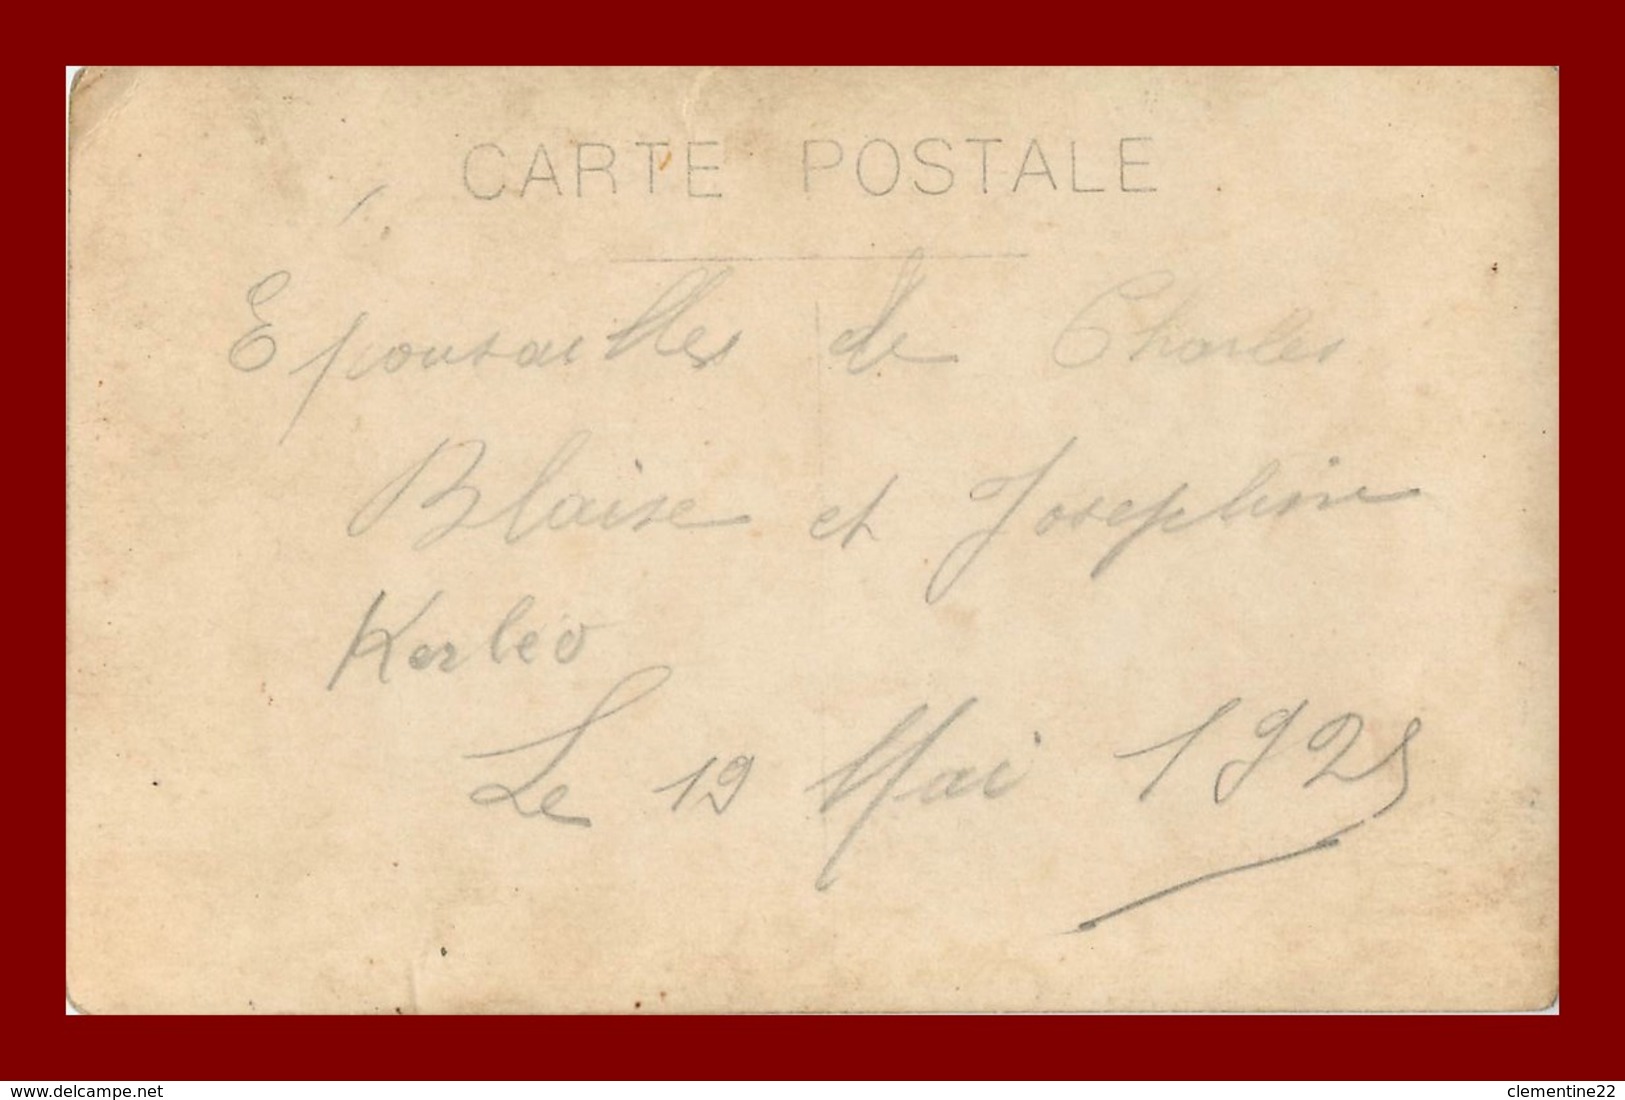 CARTE POSTALE
Epousailles de Charles
Blaise et Josephine
Kerleo
Le 19 Mai 1925
www.delcampe.net
clementine22